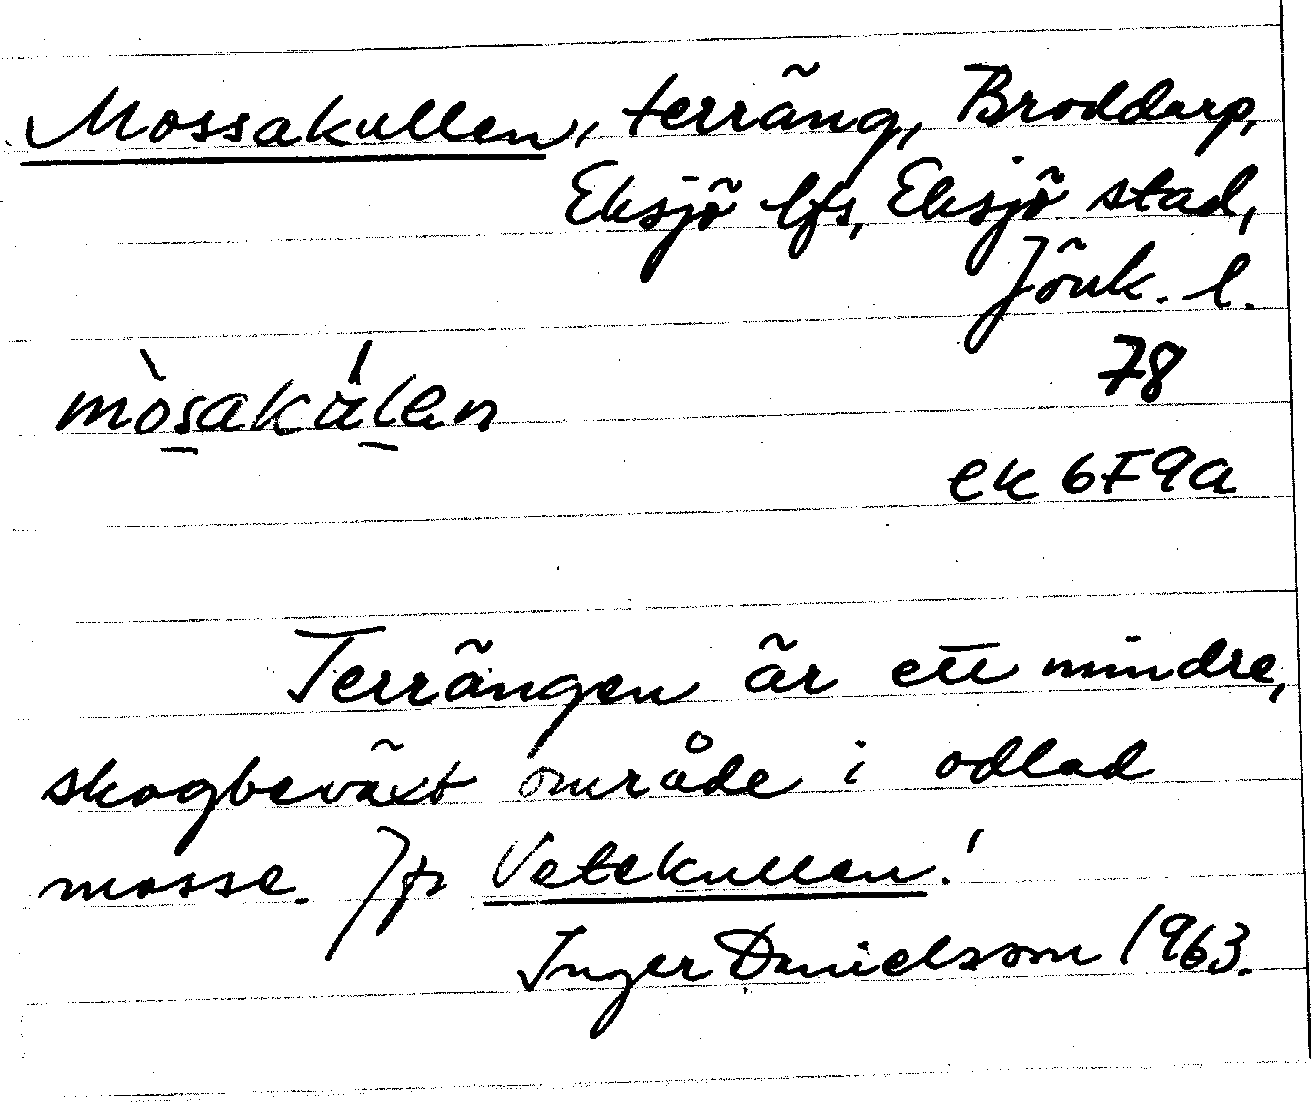 Mossakullen, terräng, Broddarp,
Eksjö lfs, Eksjö stad,
Jönk. l.
78
mòsakálen
ek 6F9a
Terrängen är ett mindre,
skogbeväxt område i odlad
mosse. Jfr Vetekullen!
Inger Danielsson 1963.